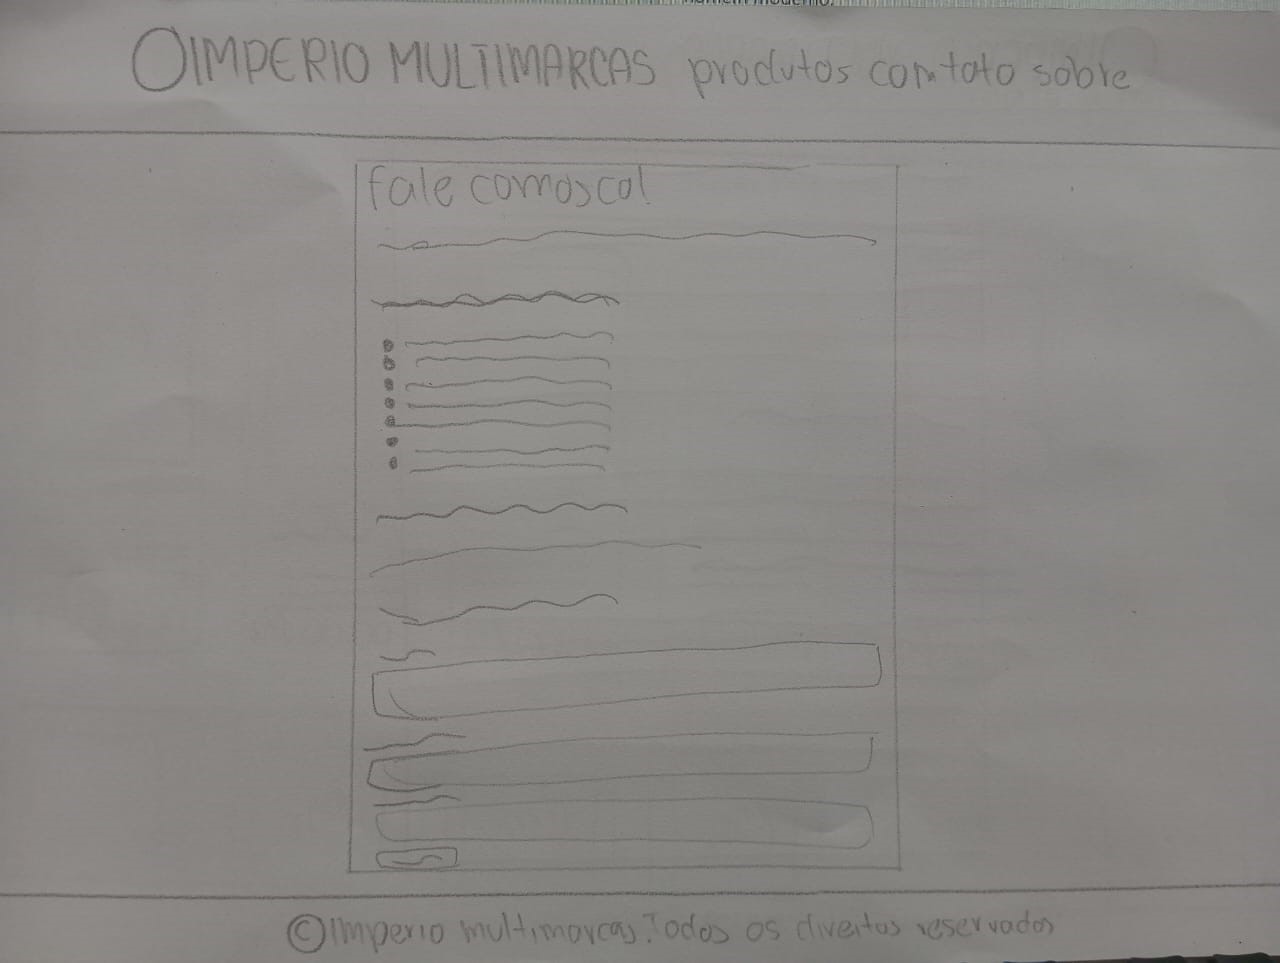 IMPERIO MULTIMARCAS produtos comtato sobre
fale comosco!
©Imperio multimarcas. Todos os direitos reservados